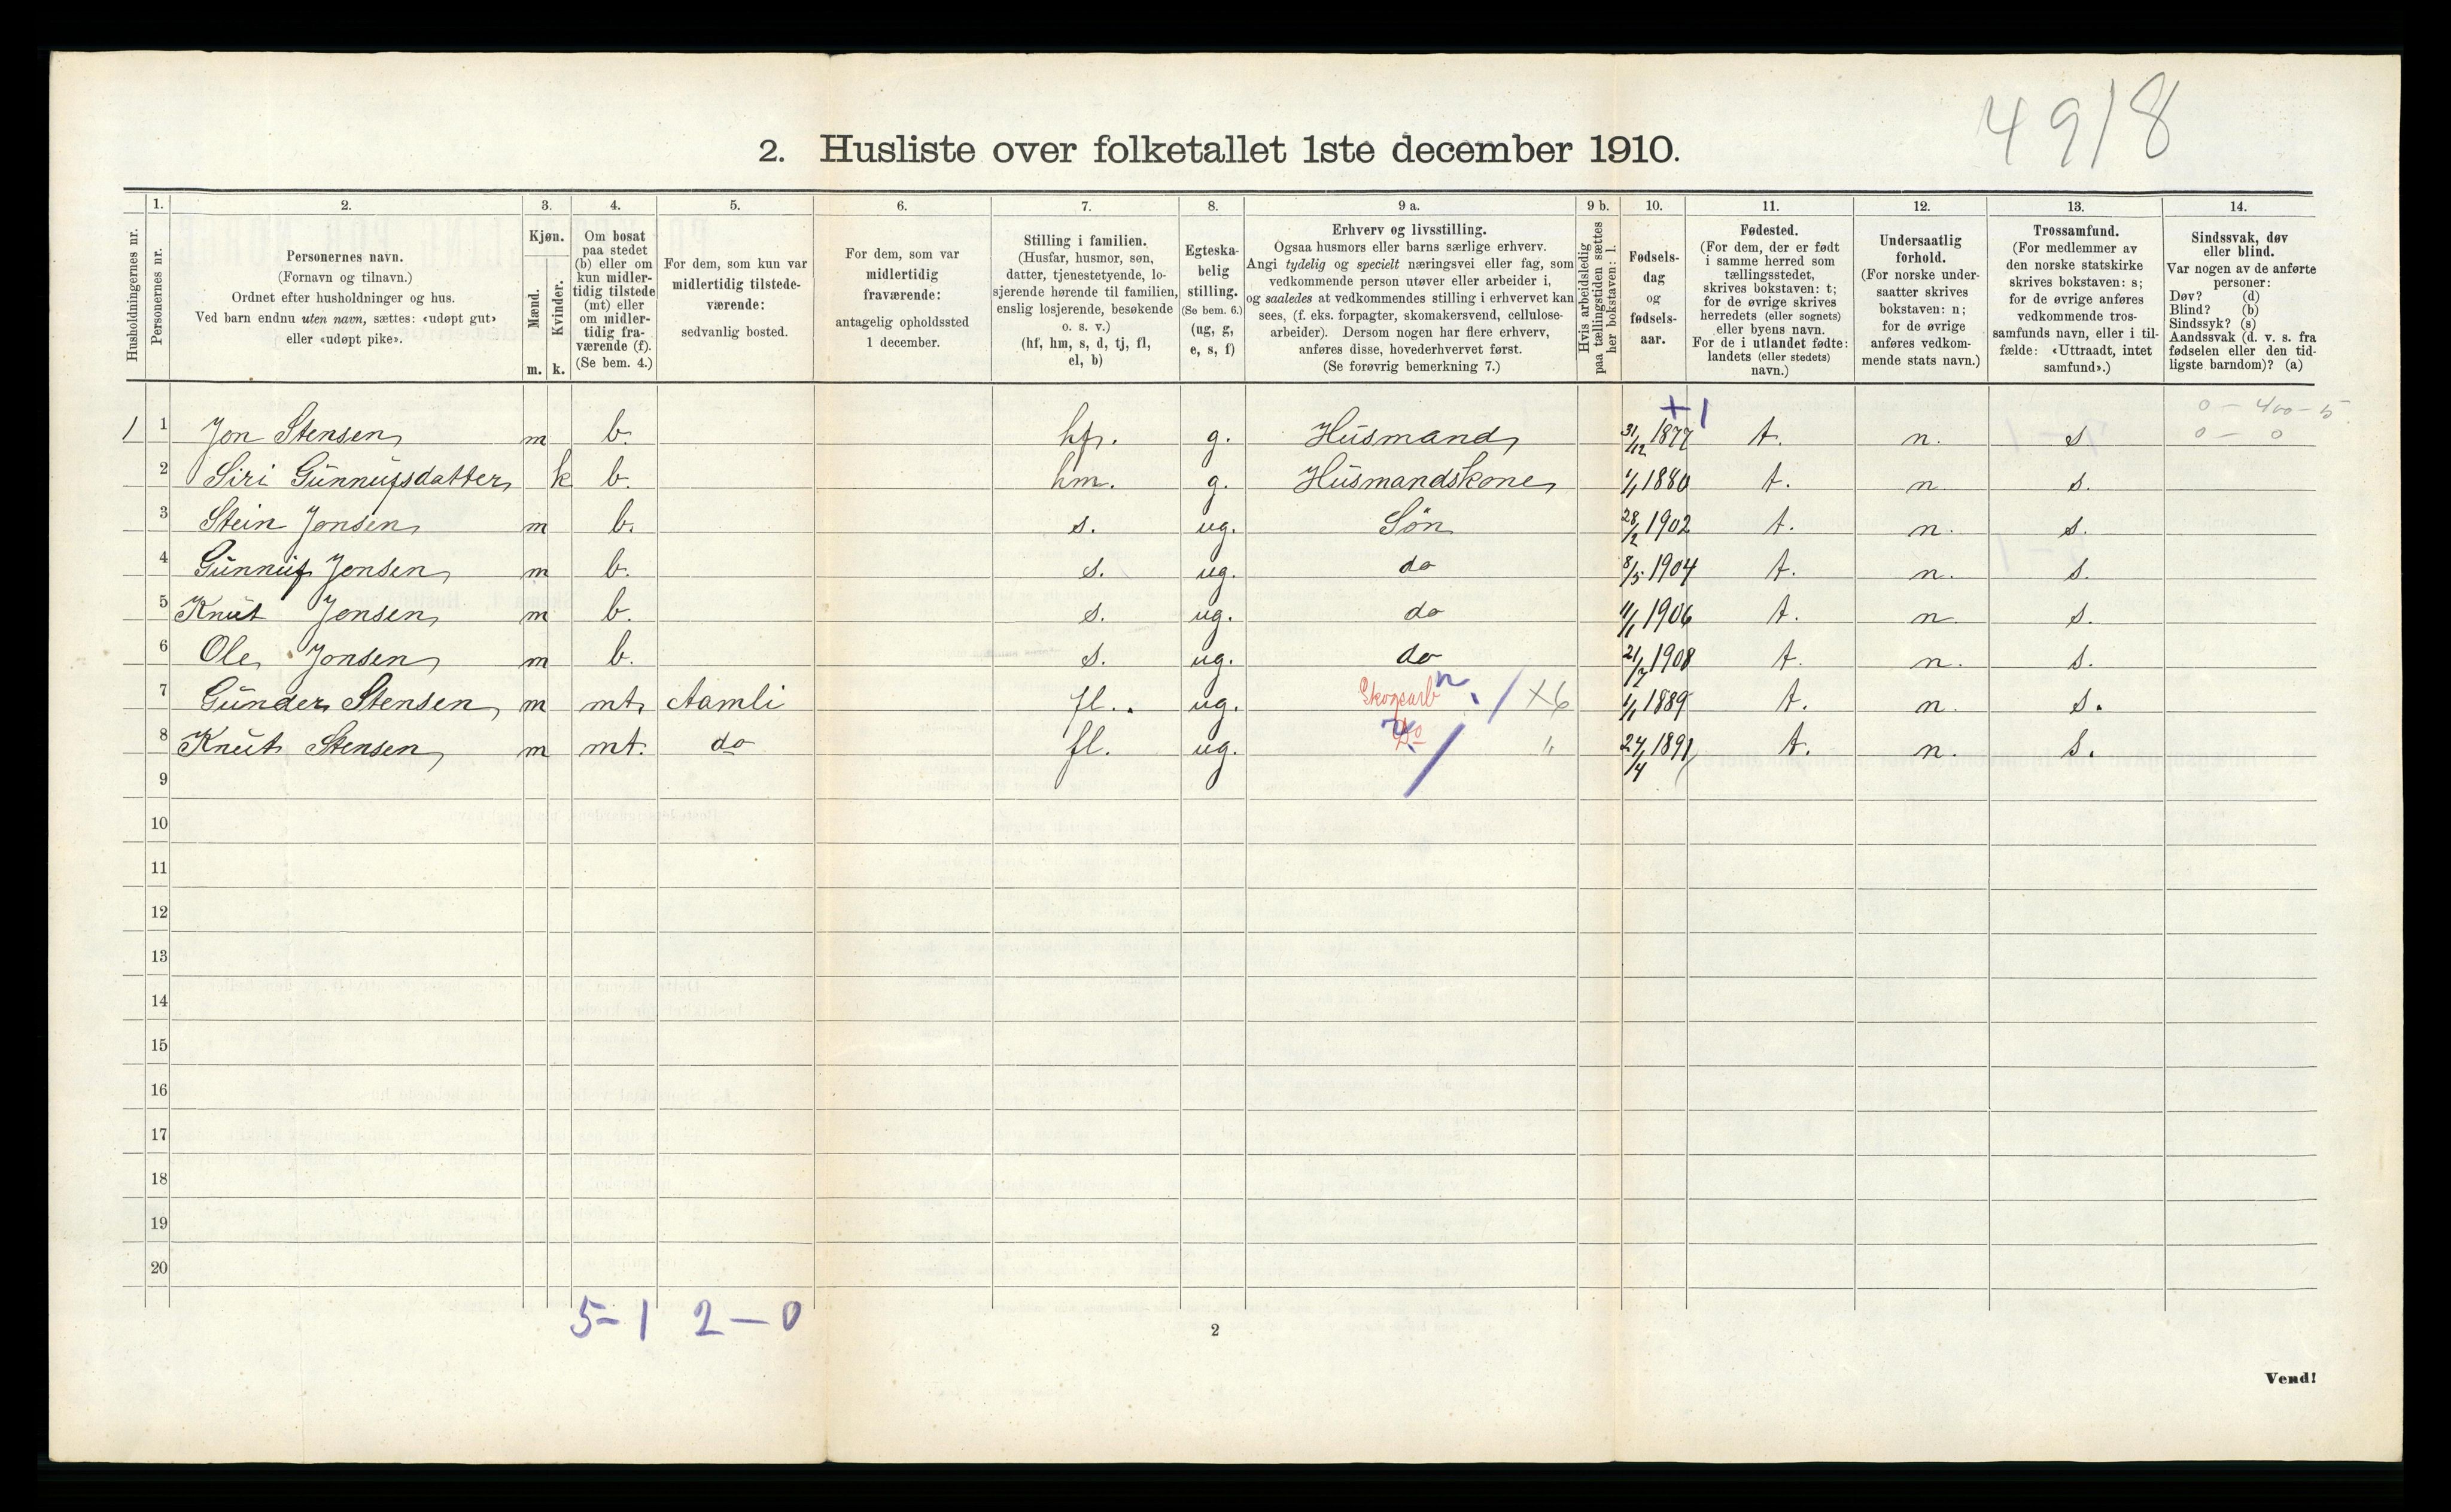 4918
2. Husliste over folketallet 1ste december 1910.
Husholdningernes nr.
1. 2. 3. 4. 5. 6. 7. 8. 9 a. 9 b. 10. 11. 12. 13. 14.
Personernes nr.
Personernes navn.
(Fornavn og tilnavn.)
Ordnet efter husholdninger og hus.
Ved barn endnu uten navn, sættes: «udøpt gut»
eller «udøpt pike».
Kjøn.
Mænd.
Kvinder.
m. k.
Om bosat
paa stedet
(b) eller om
kun midler-
tidig tilstede
(mt) eller
om midler-
tidig fra-
værende (f).
(Se bem. 4.)
For dem, som kun var
midlertidig tilstede-
værende:
sedvanlig bosted.
For dem, som var
midlertidig
fraværende:
antagelig opholdssted
1 december.
Stilling i familien.
(Husfar, husmor, søn,
datter, tjenestetyende, lo-
sjerende hørende til familien,
enslig losjerende, besøkende
o. s. v.)
(hf, hm, s, d, tj, fl,
el, b)
Egteska-
belig
stilling.
(Se bem. 6.)
(ug, g,
e, s, f)
Erhverv og livsstilling.
Ogsaa husmors eller barns særlige erhverv.
Angi tydelig og specielt næringsvei eller fag, som
vedkommende person utøver eller arbeider i,
og saaledes at vedkommendes stilling i erhvervet kan
sees, (f. eks. forpagter, skomakersvend, cellulose-
arbeider). Dersom nogen har flere erhverv,
anføres disse, hovederhvervet først.
(Se forøvrig bemerkning 7.)
Hvis arbeidsledig
paa tællingstiden sættes
her bokstaven: l.
Fødsels-
dag
og
fødsels-
aar.
Fødested.
(For dem, der er født
i samme herred som
tællingsstedet,
skrives bokstaven: t;
for de øvrige skrives
herredets (eller sognets)
eller byens navn.
For de i utlandet fødte:
landets (eller stedets)
navn.)
Undersaatlig
forhold.
(For norske under-
saatter skrives
bokstaven: n;
for de øvrige
anføres vedkom-
mende stats navn.)
Trossamfund.
(For medlemmer av
den norske statskirke
skrives bokstaven: s;
for de øvrige anføres
vedkommende tros-
samfunds navn, eller i til-
fælde: «Uttraadt, intet
samfund».)
Sindssvak, døv
eller blind.
Var nogen av de anførte
personer:
Døv? (d)
Blind? (b)
Sindssyk? (s)
Aandssvak (d. v. s. fra
fødselen eller den tid-
ligste barndom)? (a)
+1 0 - 400 - 5
1 1 Jon Stensen m b. hf. g. Husmand 31/12 1877 t. n. s. 0 - 0
2 Siri Gunnufsdatter k b. hm. g. Husmandskone 1/1 1880 t. n s.
3 Stein Jonsen m b. s. ug. Søn 28/2 1902 t. n. s.
4 Gunnuf Jonsen m b. s. ug. do 8/5 1904 t. n. s.
5 Knut Jonsen m b. s. ug. do 11/1 1906 t. n. s.
6 Ole Jonsen m b. s. ug. do 21/7 1908 t. n. s.
7 Gunder Stensen m mt. Aamli fl. ug. Skogsarb n. / X6 1/1 1889 t. n. s.
8 Knut Stensen m mt. do fl. ug. Do / " 24/4 1891 t. n. s.
9
10
11
12
13
14
15
16
17
18
19
20
5-1 2-0
2
Vend!